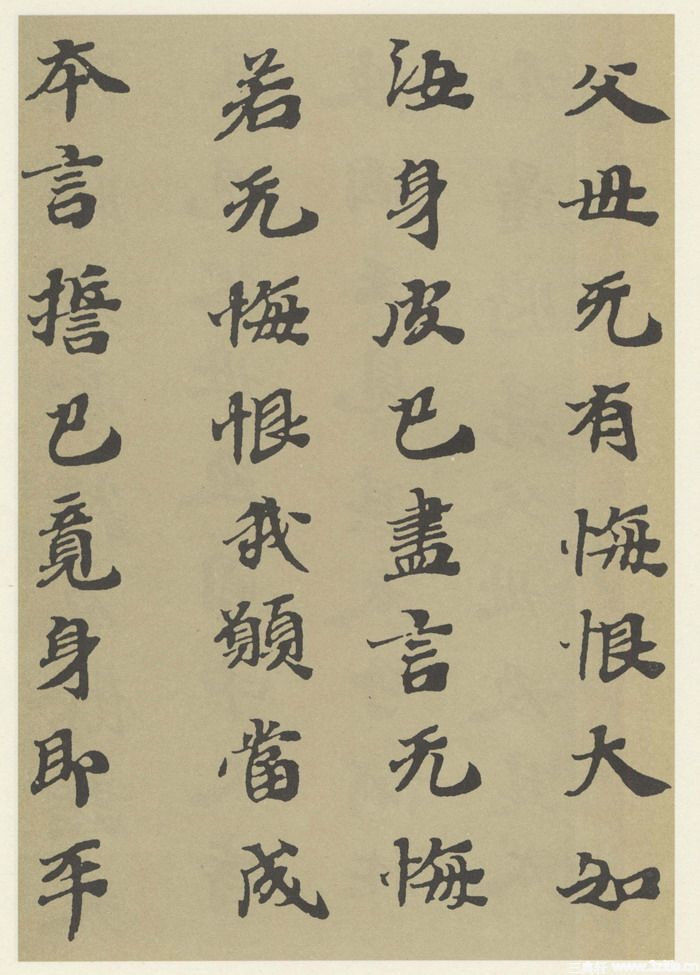 父毋无有悔恨大如
海身皮已盡言无悔
若无悔恨我願當成
本言誓已竟身即平